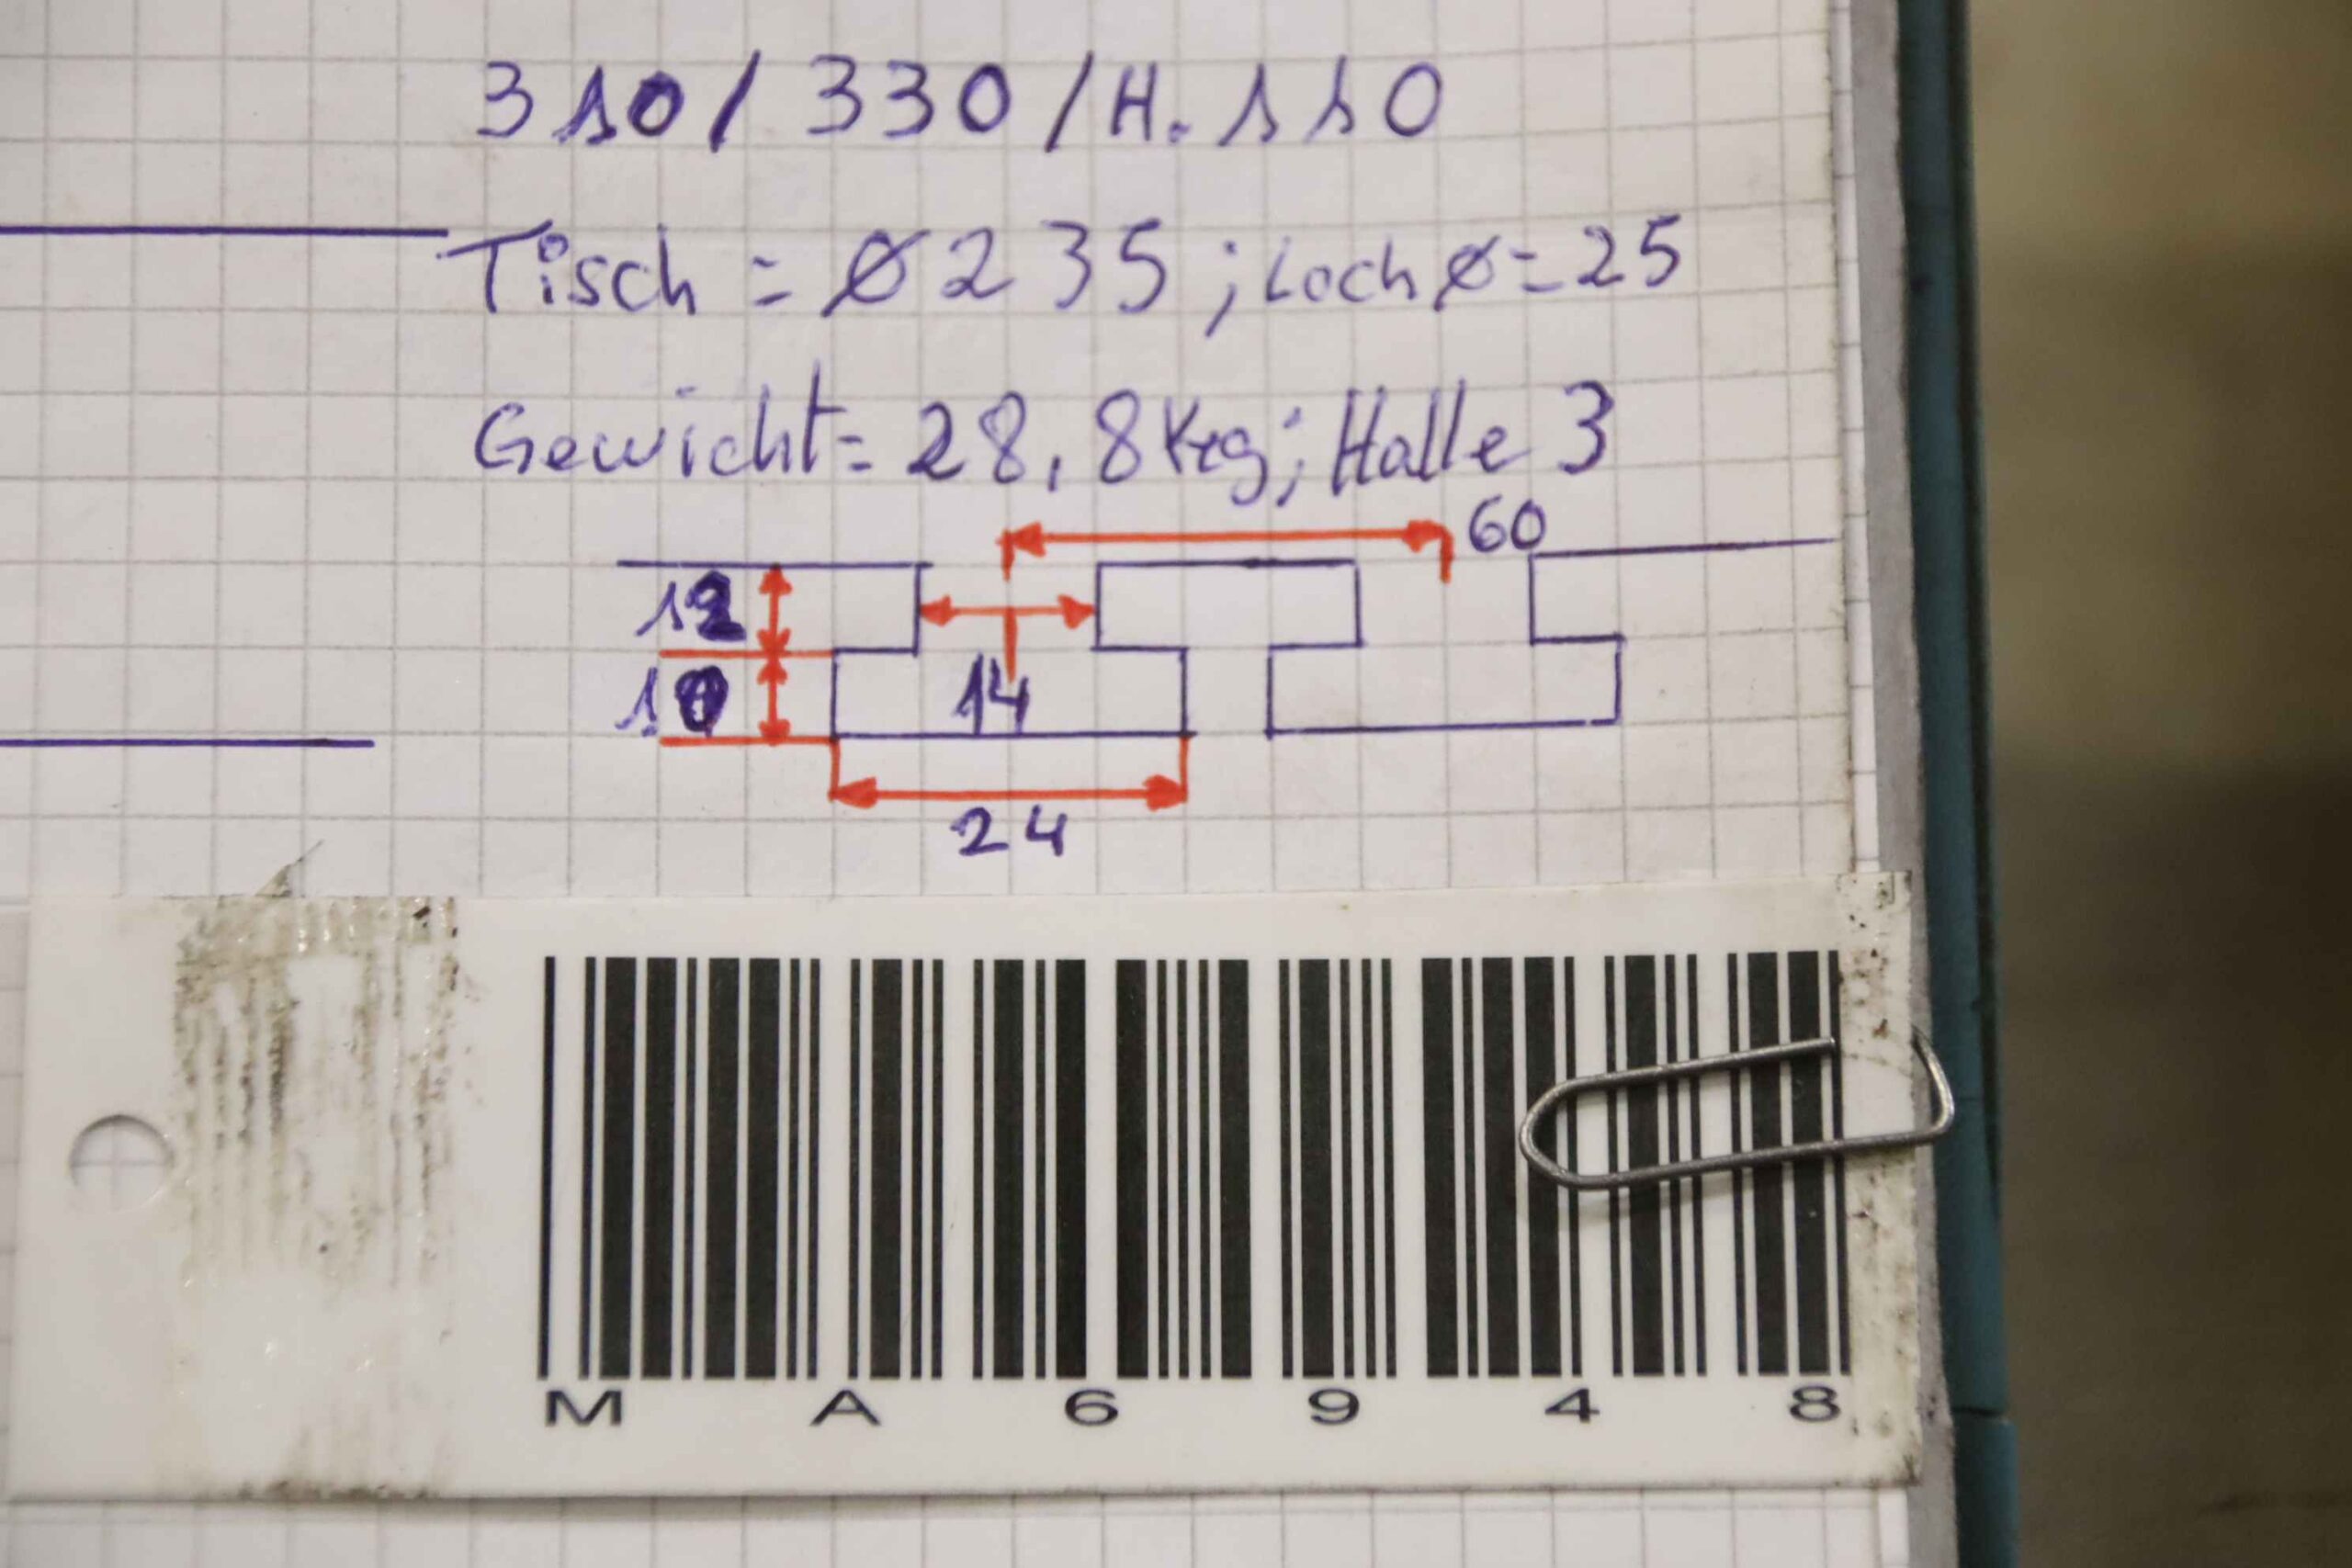 310 / 330 / H. 110
Tisch = Ø 235 ; Loch Ø = 25
Gewicht = 28,8 Kg ; Halle 3
60
12
10
14
24
M A 6 9 4 8